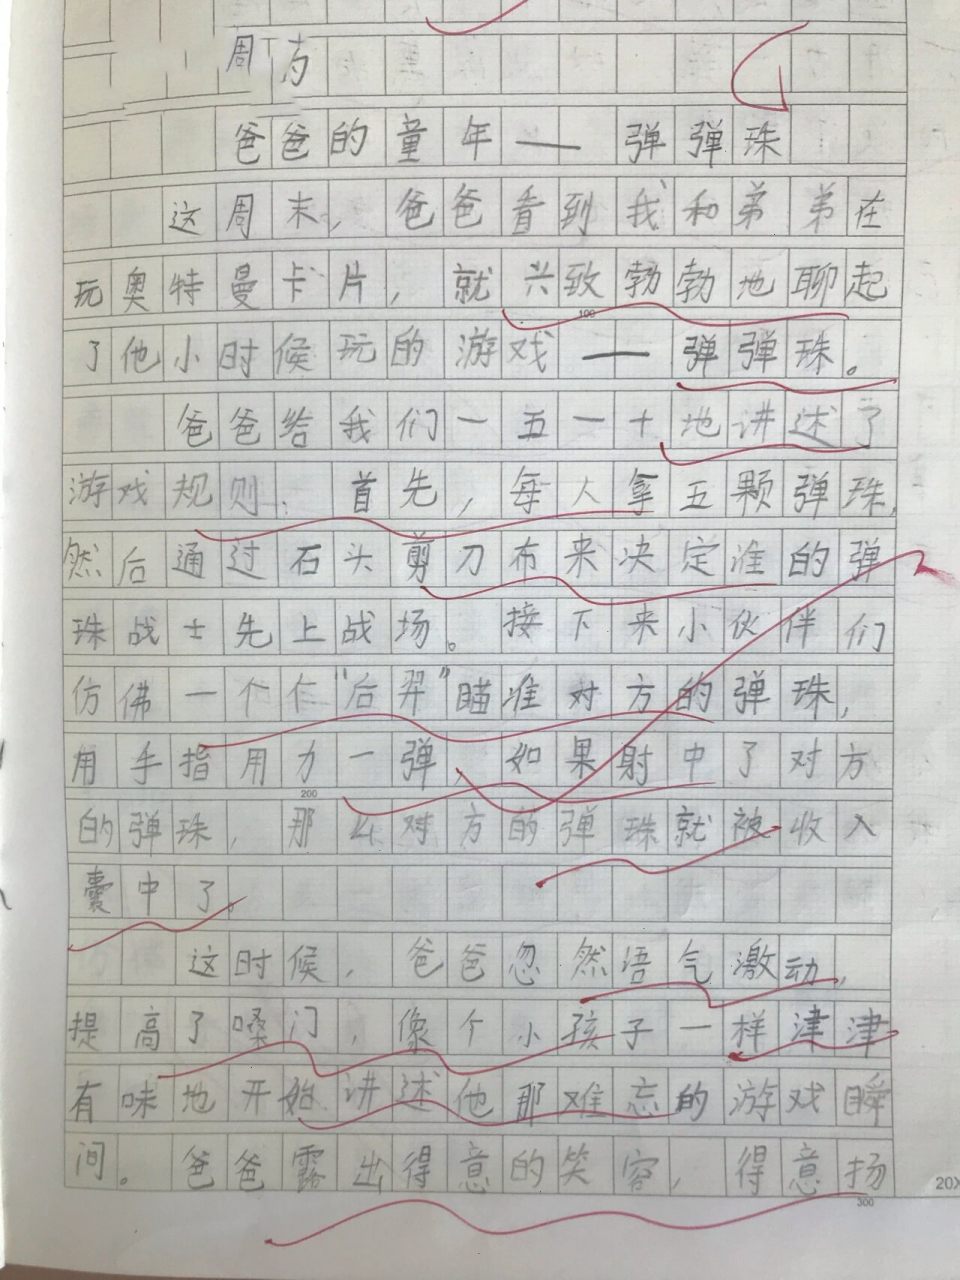 周
爸爸的童年——弹弹珠
这周末，爸爸看到我和弟弟在
玩奥特曼卡片，就兴致勃勃地聊起
100
了他小时候玩的游戏——弹弹珠。
爸爸给我们一五一十地讲述了
游戏规则：首先，每人拿五颗弹珠，
然后通过石头剪刀布来决定谁的弹
珠战士先上战场。接下来小伙伴们
仿佛一个仁“后羿”瞄准对方的弹珠，
用手指用力一弹，如果射中了对方
200
的弹珠，那么对方的弹珠就被收入
囊中了。
这时候，爸爸忽然语气激动，
提高了嗓门，像个小孩子一样津津
有味地开始讲述他那难忘的游戏瞬
间。爸爸露出得意的笑容，得意扬
20X
300